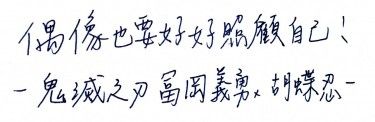 偶像也要好好照顧自己!
-鬼滅之刃 富岡義勇x胡蝶忍-